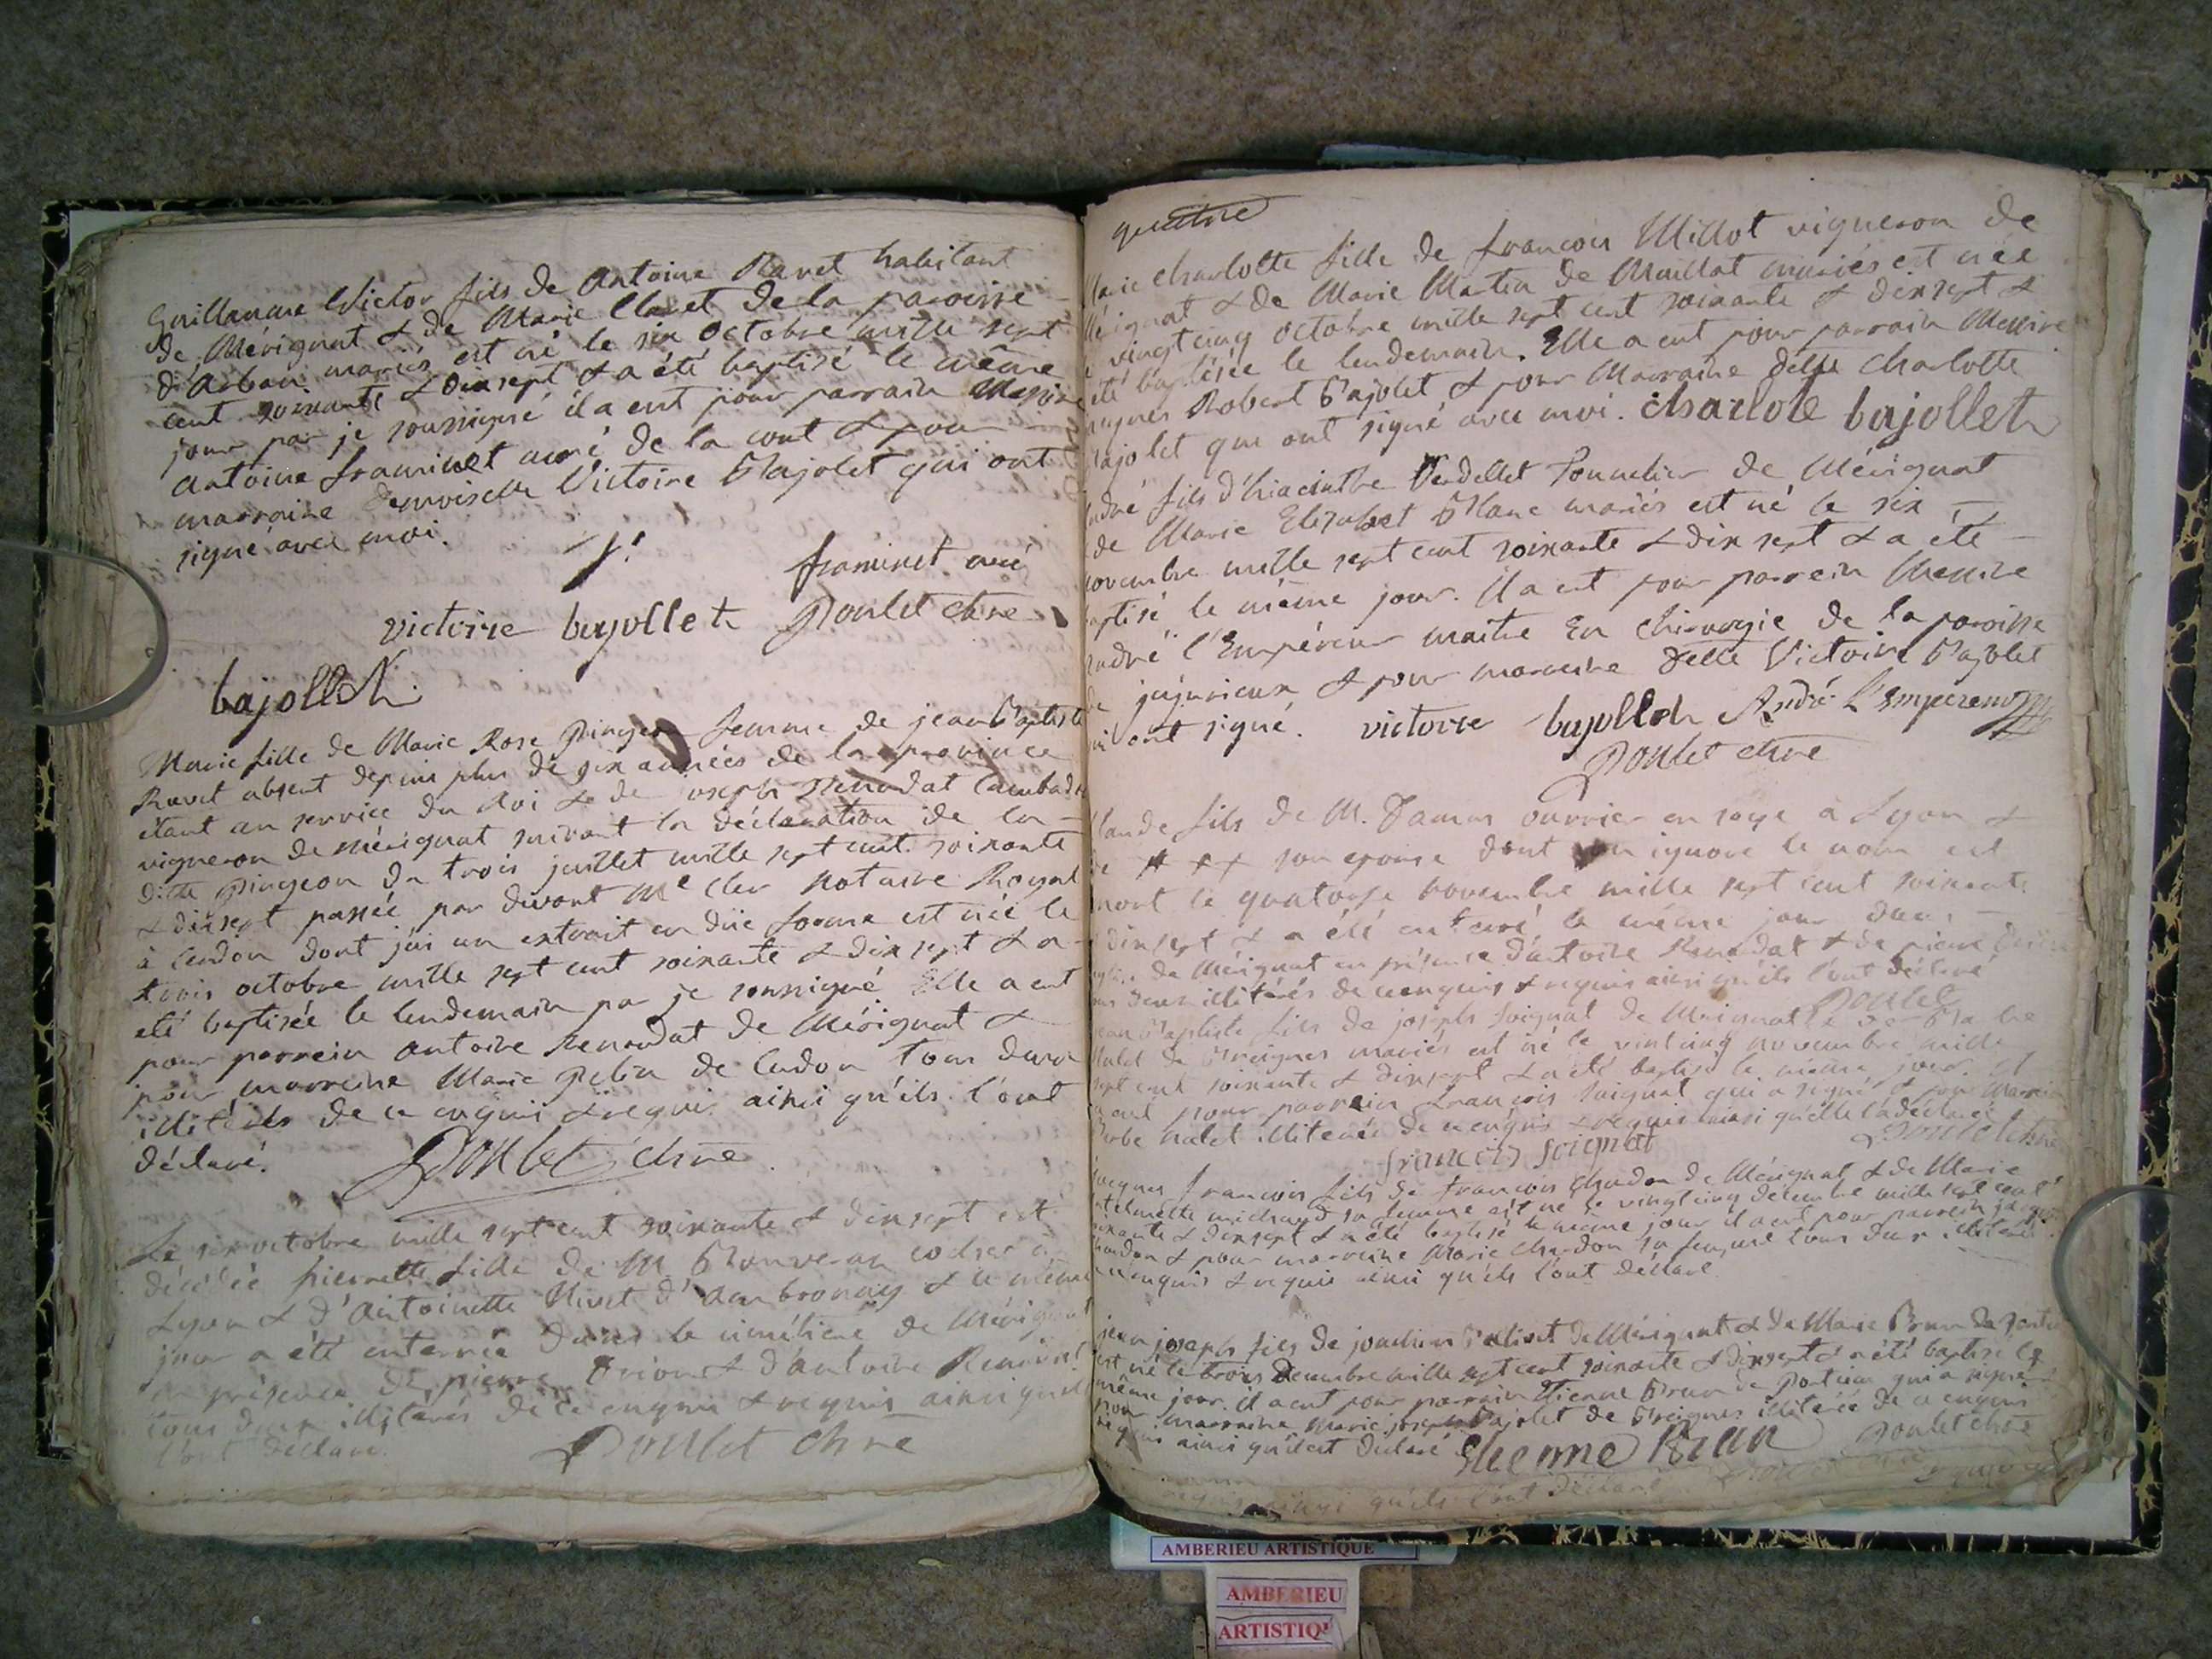 Guillaume Victor fils de Antoine Ravet habitant
de Mérignat & de Marie Claret de la paroisse
d'Arban mariés est né le six octobre mille sept
cent soixante & dixsept & a été baptisé le même
jour par je soussigné il a eut pour parrain Messire
Antoine framinet curé de la cout & pour
marraine demoiselle Victoire Bajolet qui ont
signé avec moi.
framinet curé
victoire bajollet Poulet chre
bajollet
Marie fille de Marie Rose Pingeon femme de jean Baptiste
Ravet absent depuis plus de six années de la province
étant au service du Roi & de joseph Renodat
vigneron de mérignat suivant la déclaration de la
ditte Pingeon du trois juillet mille sept cent soixante
& dixsept passée par devant Me Cler Notaire Royal
à Cerdon dont j'ai un extrait en düe forme est née le
trois octobre mille sept cent soixante & dix sept & a
été baptisée le lendemain par je soussigné Elle a eut
pour parrein antoine Renodat de Mérignat &
pour marreine Marie de Cerdon tous deux
illitérés de ce enquis & requis ainsi qu'ils l'ont
déclaré. Poulet chre
Le six octobre mille sept cent soixante & dixsept est
décédée pierrette fille de M cocher à
Lyon & d'Antoinette Nivet d'Ambronay & le même
jour a été enterrée dans le cimétiere de Mérignat
en présence de pierre & d'antoine
tous deux illitérés de ce enquis & requis ainsi qu'ils
l'ont déclaré. Poulet chre
quatre
Marie charlotte fille de francois Millot vigneron de
Mérignat & de Marie Martin de Maillat mariés est née
le vingtcinq octobre mille sept cent soixante & dixsept &
été baptisée le lendemain. Elle a eut pour parrain Messire
jaques Robert Bajolet & pour Marraine delle Charlotte
Bajolet qui ont signé avec moi. charlote bajollet
André fils d'hiacinthe Verdellet Tonnelier de Mérignat
& de Marie Elizabet Blanc mariés est né le six
novembre mille sept cent soixante & dix sept & a été
baptisé le même jour. il a eut pour parrein Messire
André l'Empéreur maitre En chirurgie de la paroisse
de jujurieux & pour marreine delle Victoire Bajolet
qui ont signé. victoire bajollet André L'Empereur
Poulet chre
Claude fils de M. Damas ouvrier en soye à Lyon &
de +++ son epouse dont on ignore le nom est
mort le quatorze novembre mille sept cent soixante
& dixsept & a été enterré le même jour dans
église de Mérignat en présence d'antoine Renodat & de pierre
tous deux illitérés de ce enquis & requis ainsi qu'ils l'ont déclaré
Poulet
jean Baptiste fils de joseph soignat de Mérignat & de
Nalet de Breignes mariés est né le vintcinq novembre mille
sept cent soixante & dixsept & a été baptisé le même jour. il
a eut pour parrein francois soignat qui a signé & pour Marreine
Nalet illiterée de ce enquis & requis ainsi qu'elle l'a déclaré
francois soignat Poulet chre
jacques francois fils de francois chadon de Mérignat & de Marie
michaud sa femme est né le vingtcinq décembre mille sept cent
soixante & dixsept & a été baptisé le même jour il a eut pour parrein jacques
chadon & pour marreine Marie chardon sa femme tous deux illitérés
de ce enquis & requis ainsi qu'ils l'ont déclaré
jean joseph fils de joachim de Mérignat & de Marie Brun de
est né le trois decembre mille sept cent soixante & dixsept & a été baptisé le
même jour. il a eut pour parrein Etienne Brun de Poncieu qui a signé
pour marraine Marie joseph Bajolet de Breignes illiterée de ce enquis
requis ainsi qu'il est declaré Etienne Brun Poulet chre
qu'ils l'ont déclaré
AMBERIEU ARTISTIQUE
AMBERIEU
ARTISTIQ